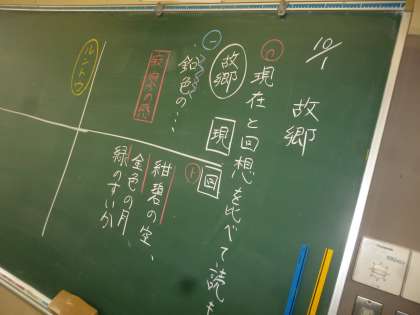 10/1
故郷
現在と回想を比べて読も
故郷
現
回
鉛色の…
寂寥の感
紺碧の空、
金色の月、
緑のすいか
ルントウ